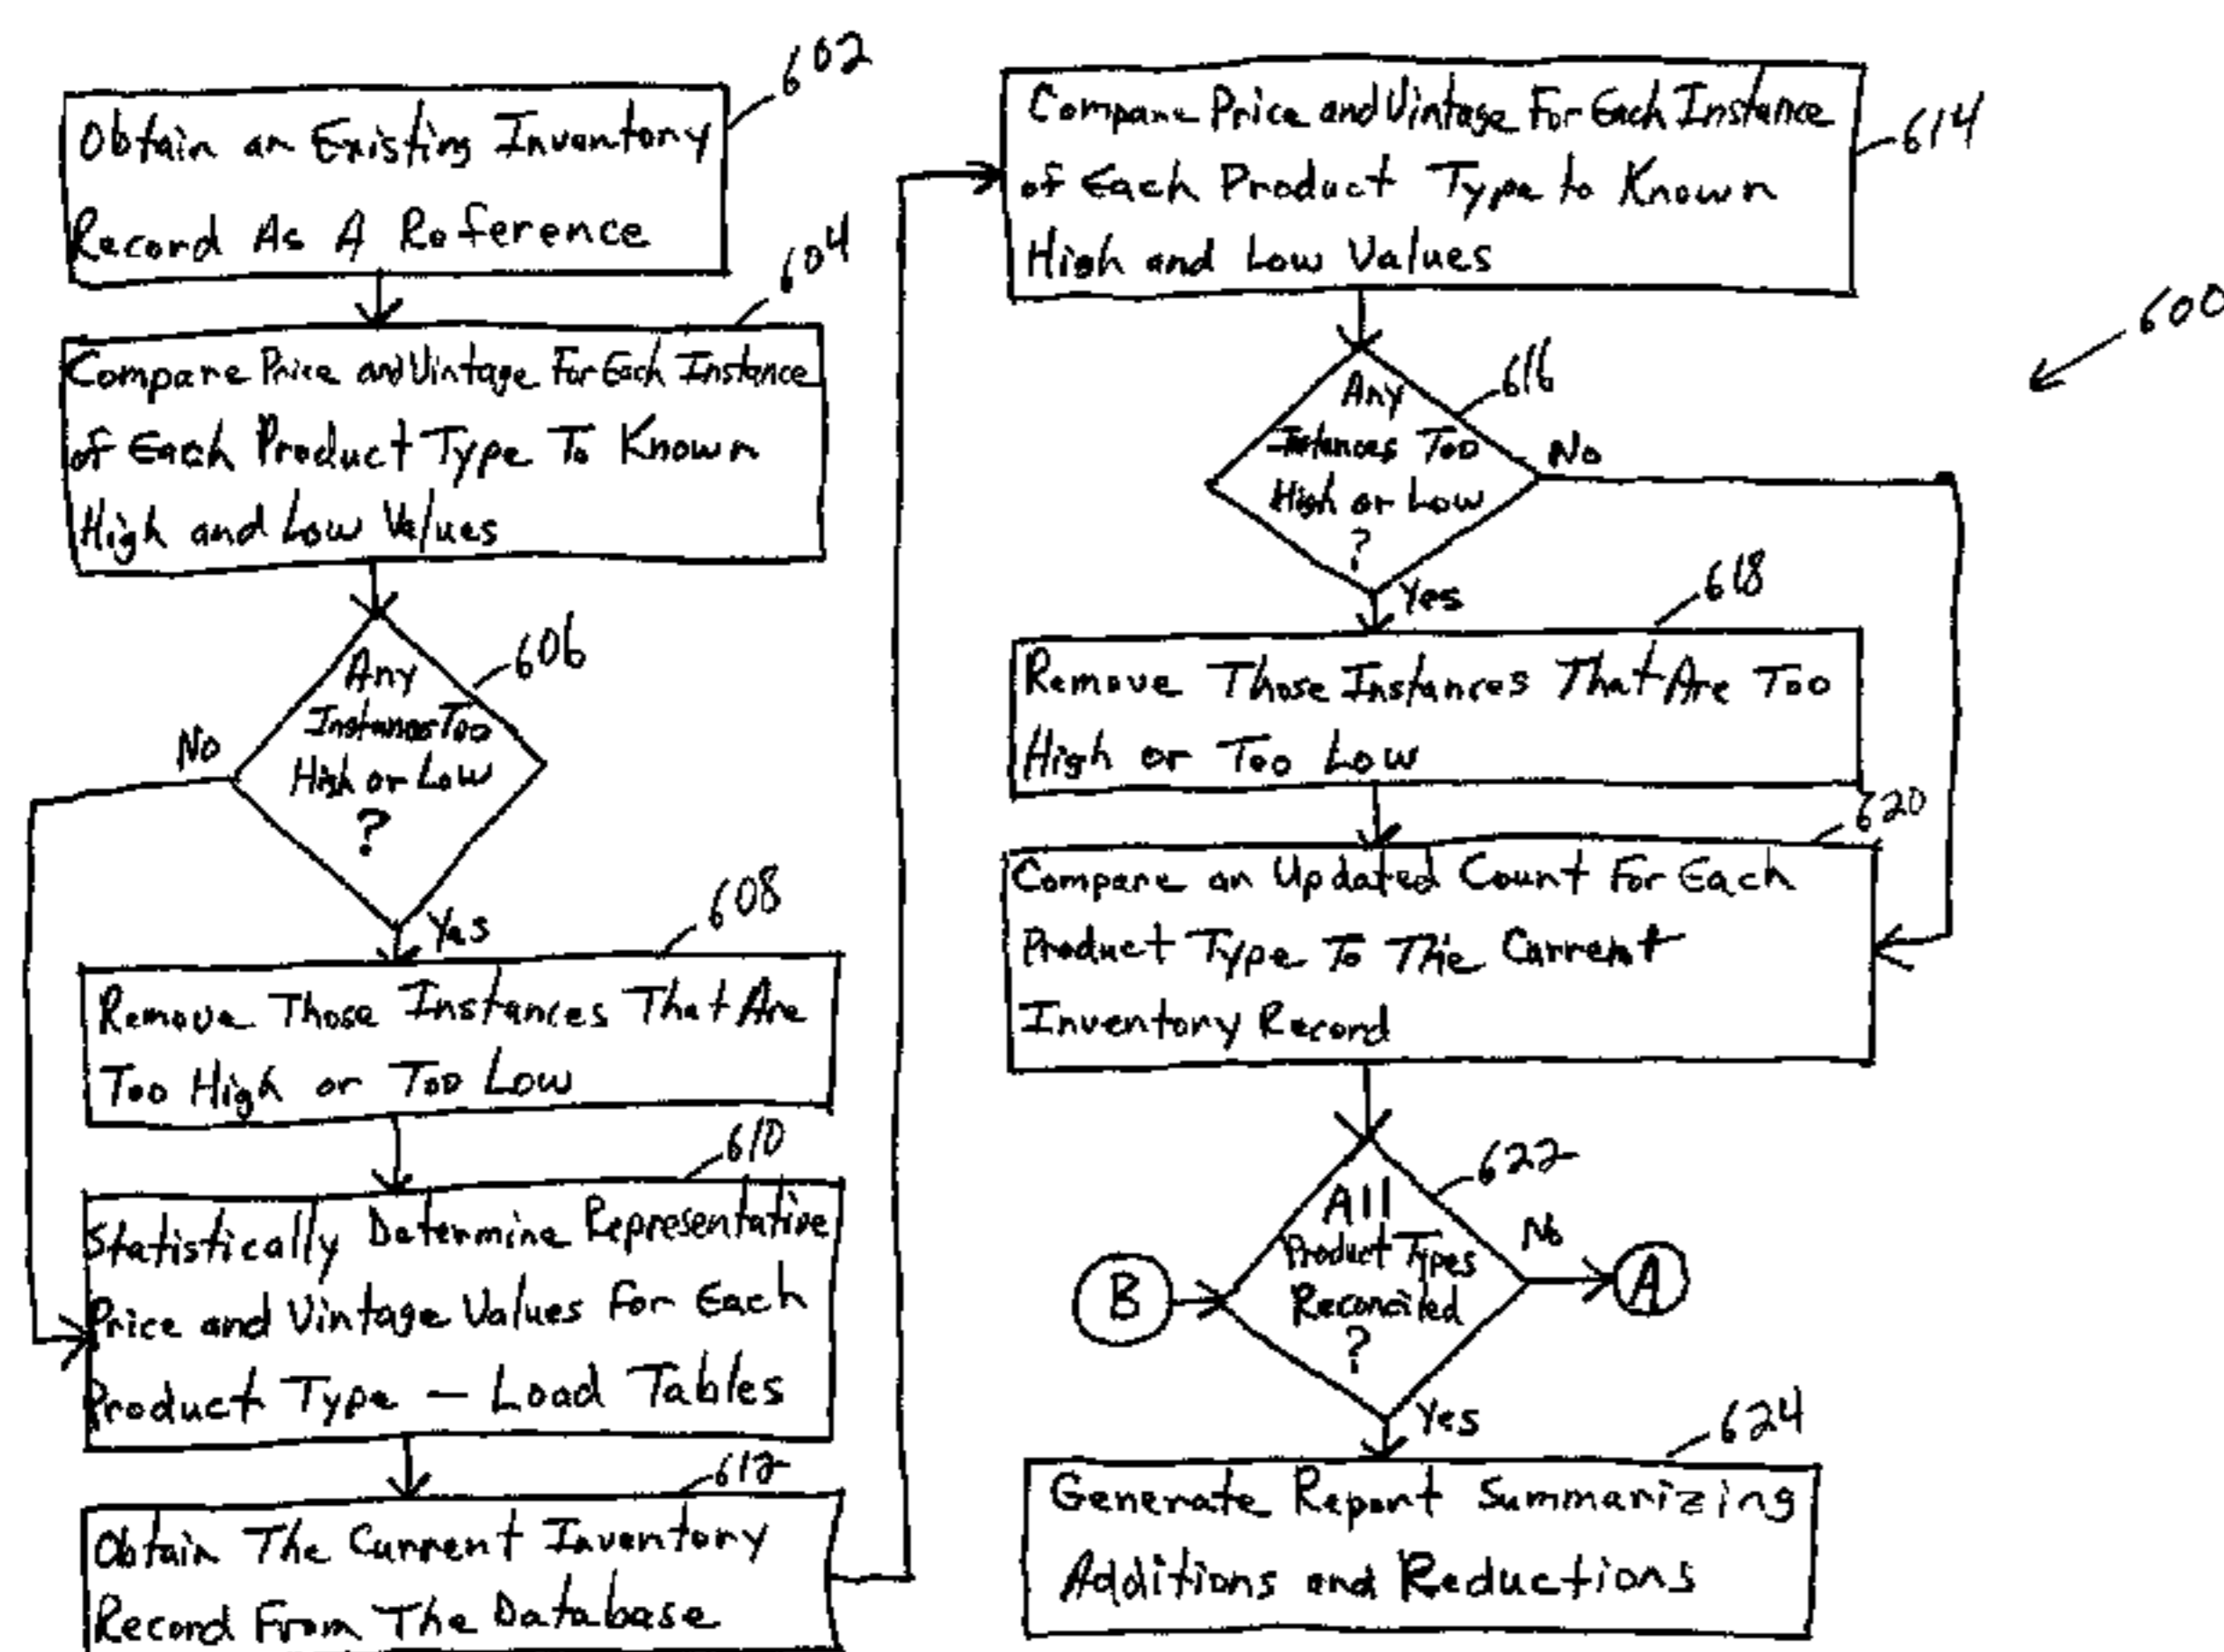 602
Obtain an Existing Inventory
Record As A Reference
604
Compare Price and Vintage For Each Instance
of Each Product Type To Known
High and Low Values
606
Any
Instances Too
High or Low
?
No
Yes
608
Remove Those Instances That Are
Too High or Too Low
610
Statistically Determine Representative
Price and Vintage Values for Each
Product Type — Load Tables
612
Obtain The Current Inventory
Record From The Database
Compare Price and Vintage For Each Instance
of Each Product Type to Known
High and Low Values
614
600
616
Any
Instances Too
High or Low
?
No
Yes
618
Remove Those Instances That Are Too
High or Too Low
620
Compare an Updated Count For Each
Product Type To The Current
Inventory Record
622
All
Product Types
Reconciled
?
B
No
A
Yes
624
Generate Report Summarizing
Additions and Reductions